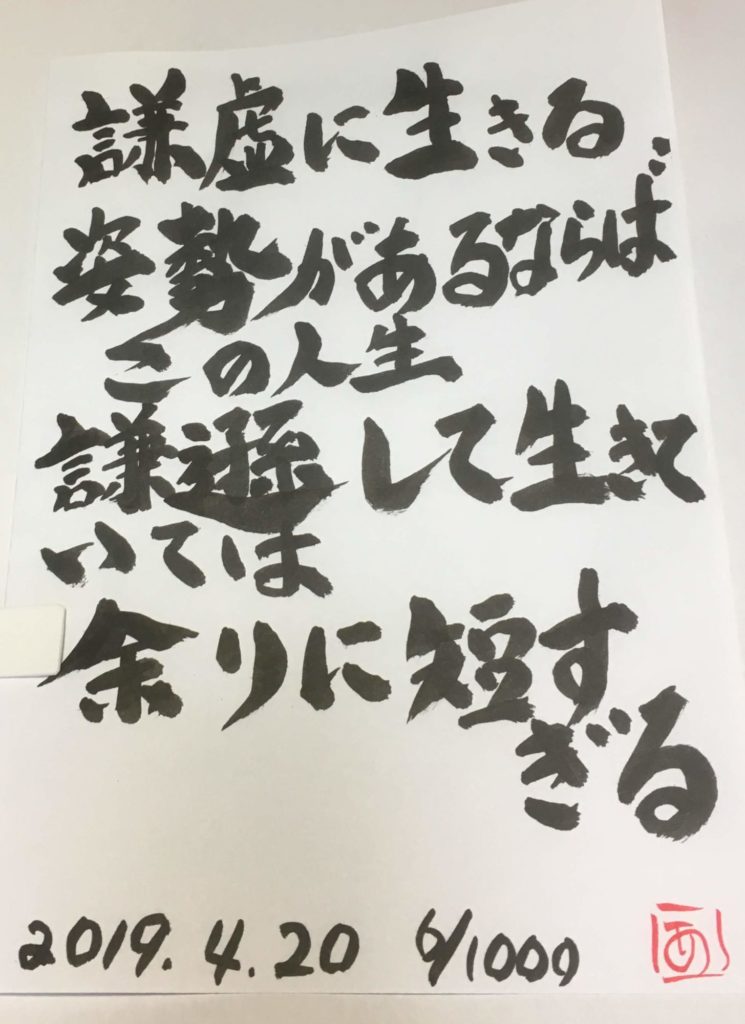 謙虚に生きる
姿勢があるならば
この人生
謙遜して生きて
いては
余りに短す
ぎる
2019.4.20 6/1000